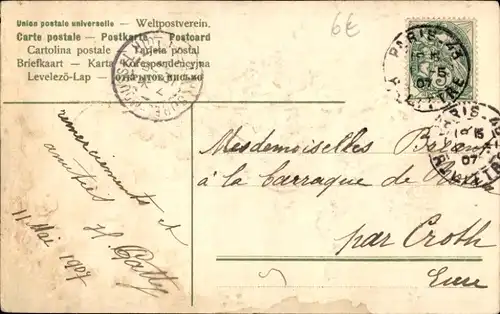 6€
Union postale universelle – Weltpostverein.
Carte postale – Postkarte – Postcard
Cartolina postale – Tarjeta postal
Briefkaart – Karta Korespondencyjna
Levelezö-Lap – ОТКРЫТОЕ ПИСЬМО
PARIS
07
PARIS
15
07
remerciements et
amitiés
11 Mai 1907
Mesdemoiselles
à la Barraque de
par Croth
Eure